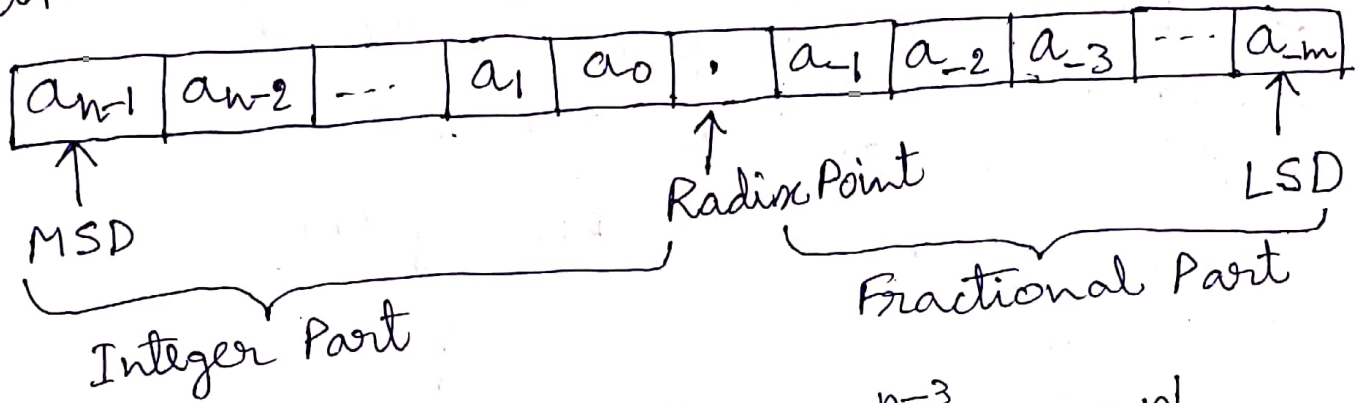 a_{n-1} a_{n-2} --- a_1 a_0 . a_{-1} a_{-2} a_{-3} --- a_{-m}
MSD Radix Point LSD
Integer Part Fractional Part
n-3